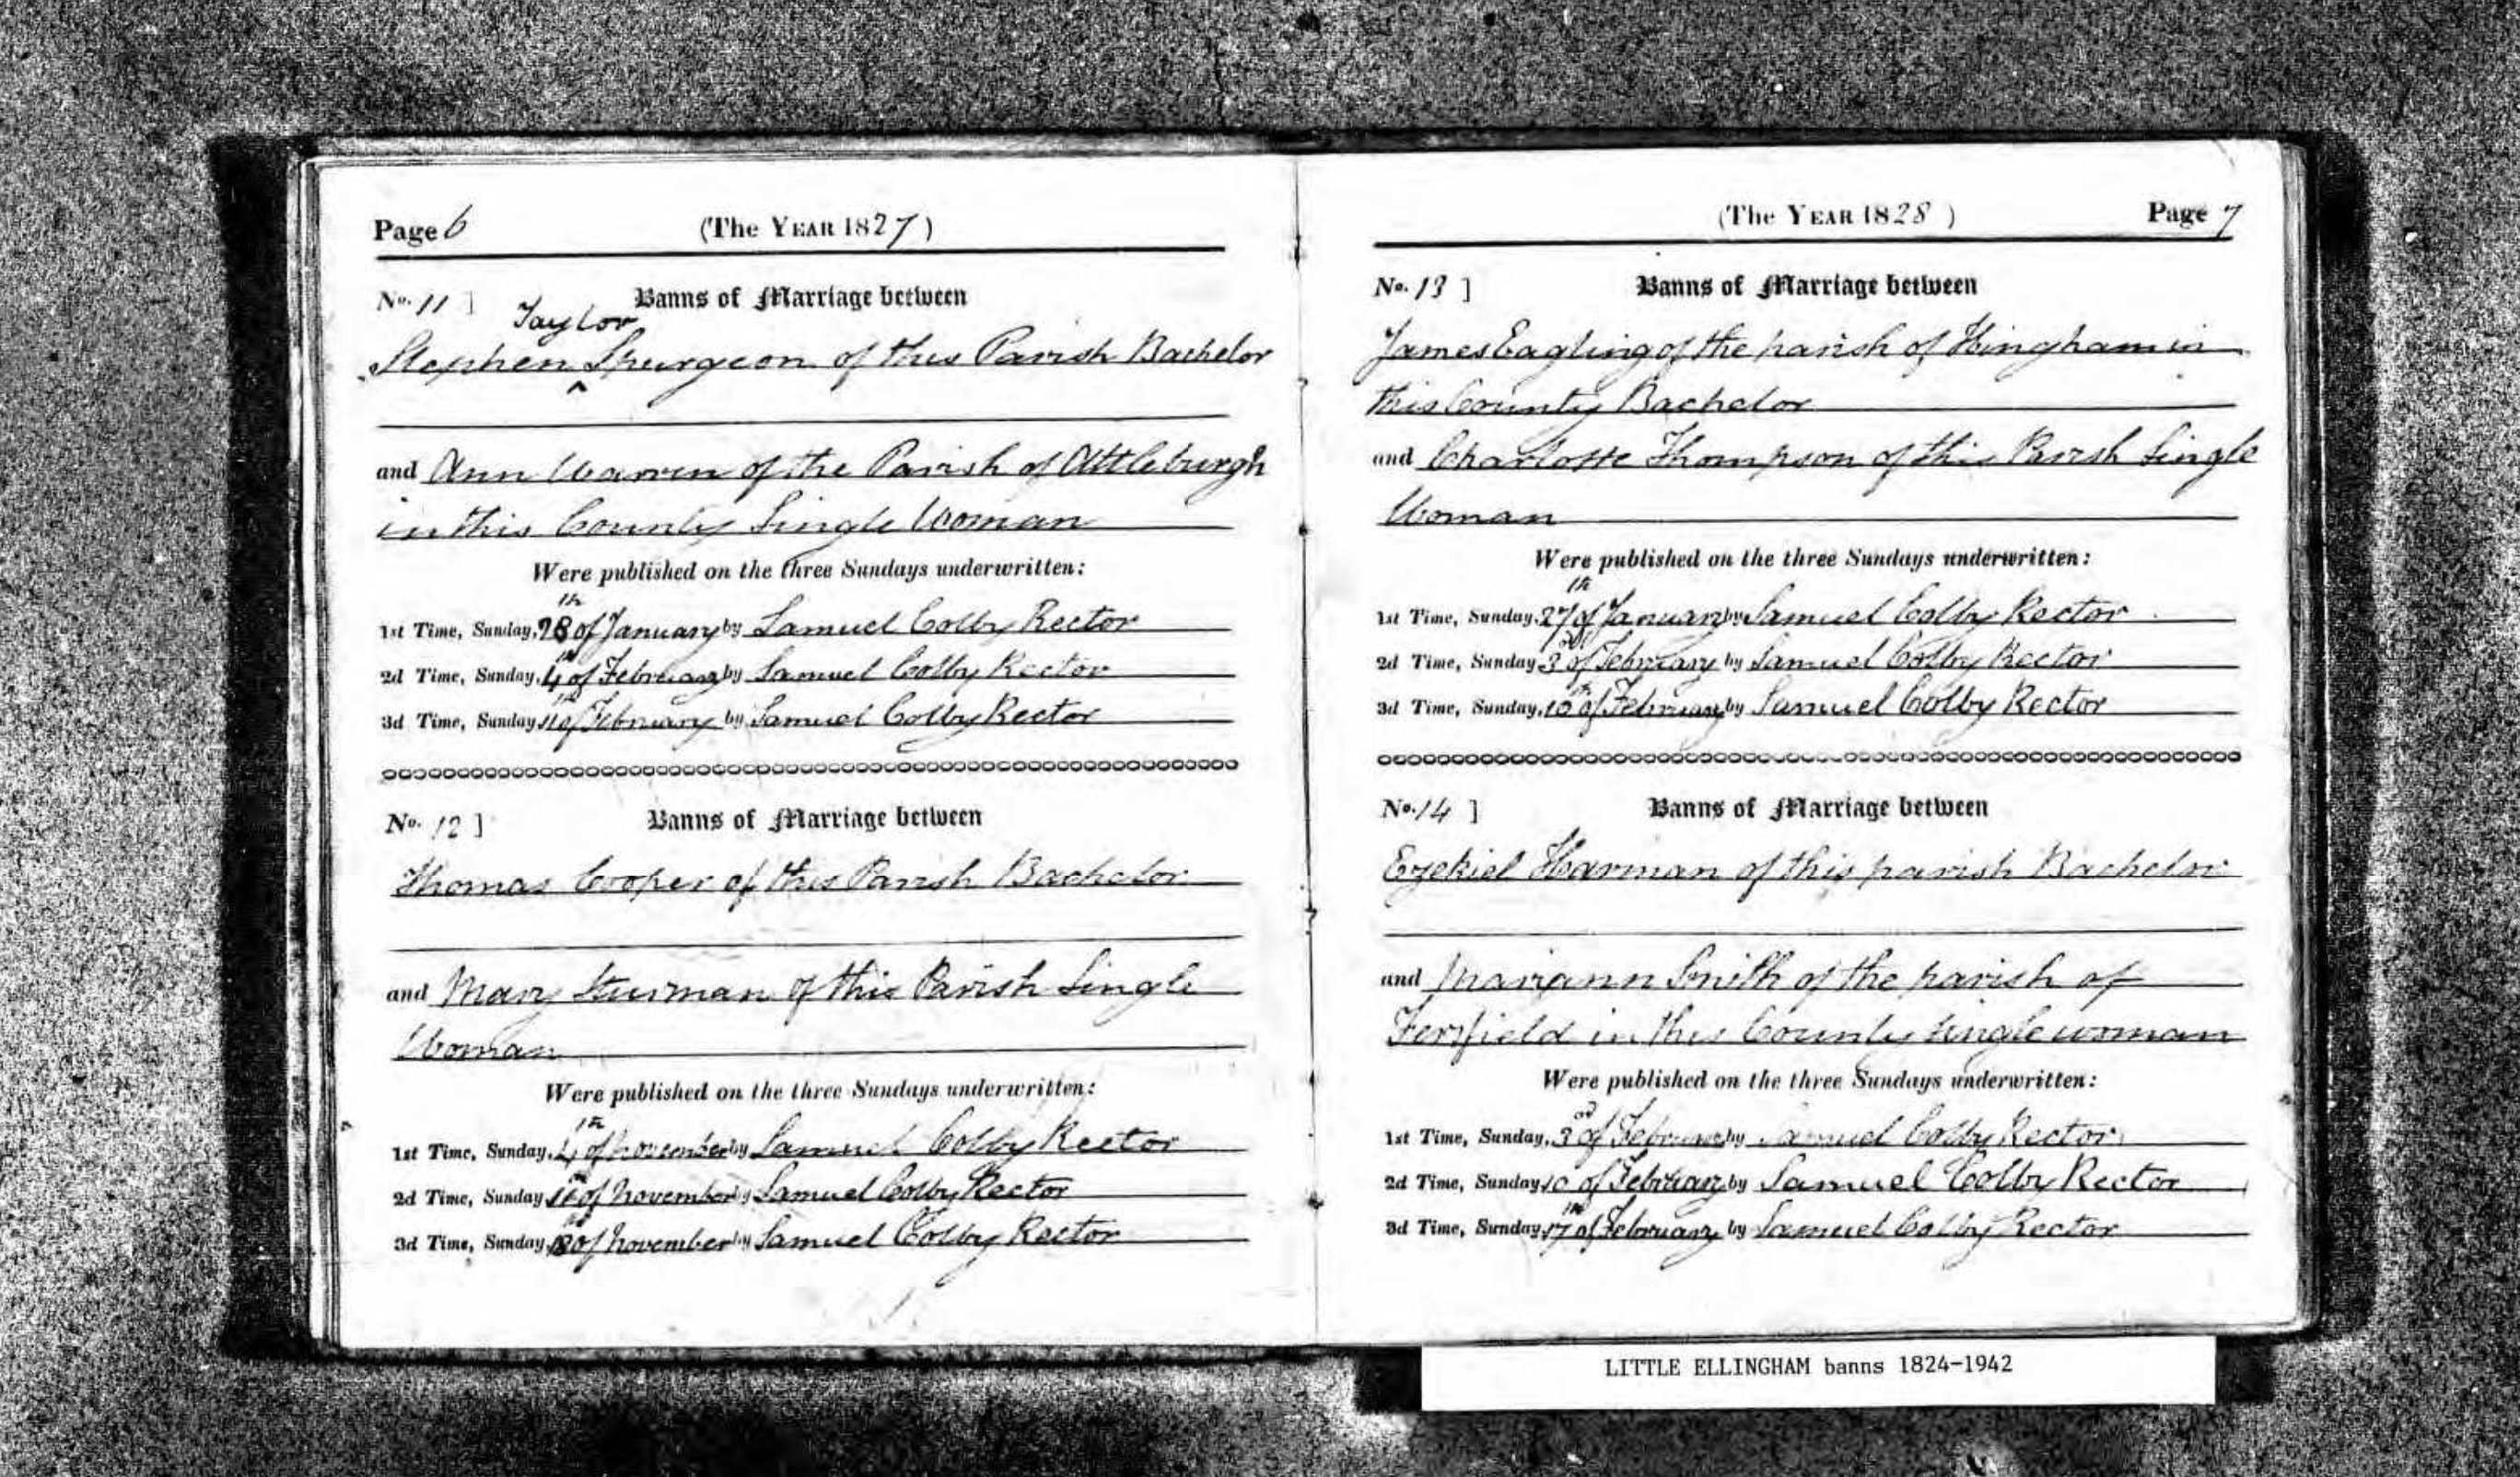 Page 6 (The YEAR 1827)
No. 11 ] Banns of Marriage between
Taylor
Stephen ^ Spurgeon of this Parish Bachelor
and Ann Warren of the Parish of Attleburgh
in this County Single Woman
Were published on the three Sundays underwritten:
1st Time, Sunday, 28th of January by Samuel Colby Rector
2d Time, Sunday, 4th of February by Samuel Colby Rector
3d Time, Sunday 11th of February by Samuel Colby Rector
No. 12 ] Banns of Marriage between
Thomas Cooper of this Parish Bachelor
and Mary Sturman of this Parish Single
Woman
Were published on the three Sundays underwritten:
1st Time, Sunday, 4th of November by Samuel Colby Rector
2d Time, Sunday 11th of November by Samuel Colby Rector
3d Time, Sunday of November by Samuel Colby Rector
(The YEAR 1828 ) Page 7
No. 13 ] Banns of Marriage between
James Eagling of the parish of Hingham in
this County Bachelor
and Charlotte Thompson of this Parish Single
Woman
Were published on the three Sundays underwritten:
1st Time, Sunday, 27th of January by Samuel Colby Rector
2d Time, Sunday 3rd of February by Samuel Colby Rector
3d Time, Sunday, 10th of February by Samuel Colby Rector
No. 14 ] Banns of Marriage between
Ezekiel Harman of this parish Bachelor
and Mariann Smith of the parish of
Fersfield in this County single woman
Were published on the three Sundays underwritten:
1st Time, Sunday, 3rd of February by Samuel Colby Rector
2d Time, Sunday 10 of February by Samuel Colby Rector
3d Time, Sunday 17th of February by Samuel Colby Rector
LITTLE ELLINGHAM banns 1824-1942